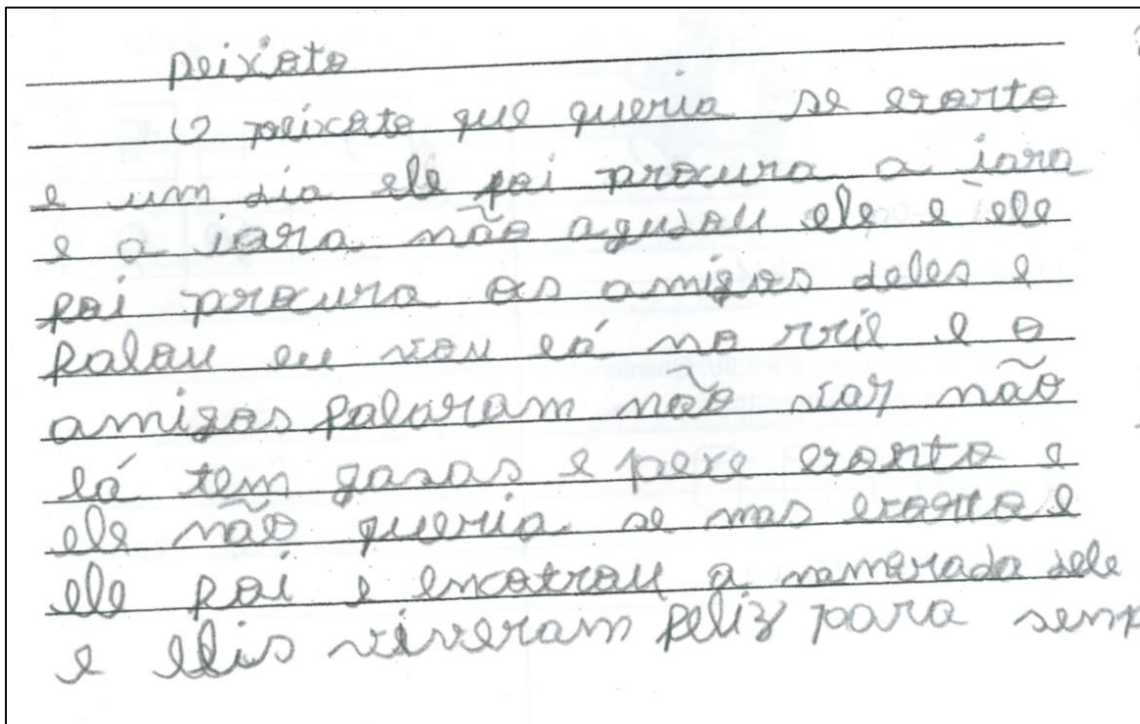 peixoto
O peixoto que queria se exorto
e um dia ele foi procura a iara
e a iara não agudou ele e ele
foi procura os amigos deles e
falou eu vou lá no rril e o
amigos falaram não var não
lá tem garas e pexe exorto e
ele não queria se mas e
ele foi e encotrou a namorada dele
e elis viveram feliz para semp